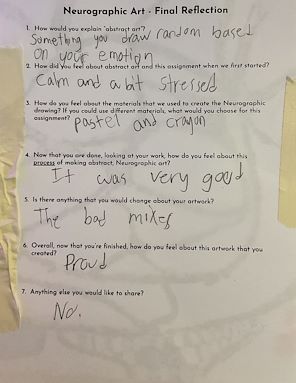 Neurographic Art - Final Reflection
1. How would you explain "abstract art"?
Something you draw random based
on your emotion
2. How did you feel about abstract art and this assignment when we first started?
Calm and a bit stressed
3. How do you feel about the materials that we used to create the Neurographic
drawing? If you could use different materials, what would you choose for this
assignment?
pastel and crayon
4. Now that you are done, looking at your work, how do you feel about this
process of making abstract, Neurographic art?
It was very good
5. Is there anything that you would change about your artwork?
The bad mixes
6. Overall, now that you're finished, how do you feel about this artwork that you
created?
Proud
7. Anything else you would like to share?
No.